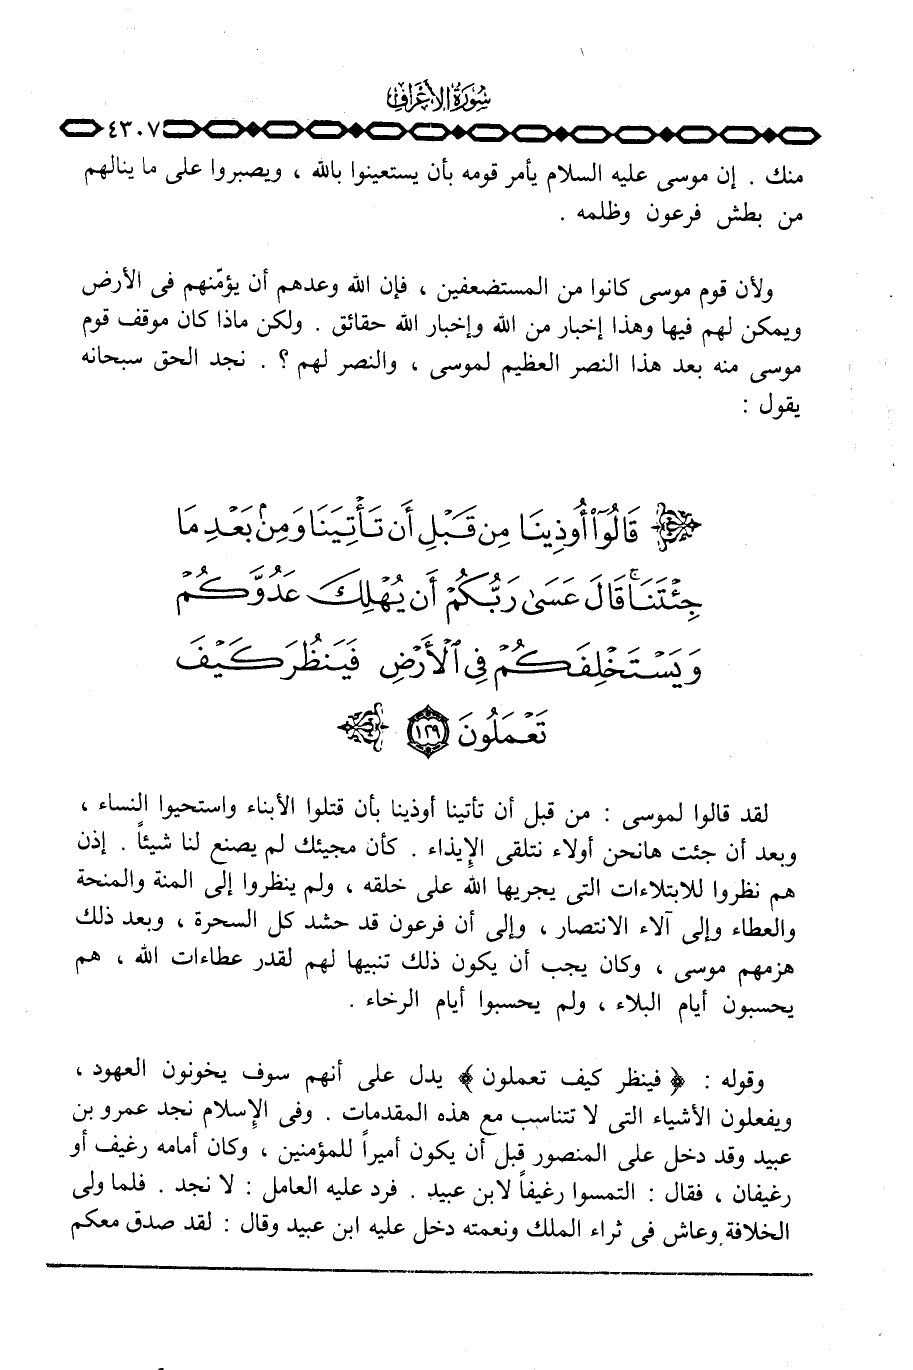 سُورَةُ الأَعْرَافِ
٤٣٠٧
منك . إن موسى عليه السلام يأمر قومه بأن يستعينوا بالله ، ويصبروا على ما ينالهم
من بطش فرعون وظلمه .
ولأن قوم موسى كانوا من المستضعفين ، فإن الله وعدهم أن يؤمّنهم فى الأرض
ويمكن لهم فيها وهذا إخبار من الله وإخبار الله حقائق . ولكن ماذا كان موقف قوم
موسى منه بعد هذا النصر العظيم لموسى ، والنصر لهم ؟ . نجد الحق سبحانه
يقول :
قَالُوٓا۟ أُوذِينَا مِن قَبْلِ أَن تَأْتِيَنَا وَمِنۢ بَعْدِ مَا
جِئْتَنَا ۚ قَالَ عَسَىٰ رَبُّكُمْ أَن يُهْلِكَ عَدُوَّكُمْ
وَيَسْتَخْلِفَكُمْ فِى ٱلْأَرْضِ فَيَنظُرَ كَيْفَ
تَعْمَلُونَ ١٢٩
لقد قالوا لموسى : من قبل أن تأتينا أوذينا بأن قتلوا الأبناء واستحيوا النساء ،
وبعد أن جئت هانحن أولاء نتلقى الإيذاء . كأن مجيئك لم يصنع لنا شيئاً . إذن
هم نظروا للابتلاءات التى يجريها الله على خلقه ، ولم ينظروا إلى المنة والمنحة
والعطاء وإلى آلاء الانتصار ، وإلى أن فرعون قد حشد كل السحرة ، وبعد ذلك
هزمهم موسى ، وكان يجب أن يكون ذلك تنبيها لهم لقدر عطاءات الله ، هم
يحسبون أيام البلاء ، ولم يحسبوا أيام الرخاء .
وقوله : ﴿ فينظر كيف تعملون ﴾ يدل على أنهم سوف يخونون العهود ،
ويفعلون الأشياء التى لا تتناسب مع هذه المقدمات . وفى الإسلام نجد عمرو بن
عبيد وقد دخل على المنصور قبل أن يكون أميراً للمؤمنين ، وكان أمامه رغيف أو
رغيفان ، فقال : التمسوا رغيفاً لابن عبيد . فرد عليه العامل : لا نجد . فلما ولى
الخلافة وعاش فى ثراء الملك ونعمته دخل عليه ابن عبيد وقال : لقد صدق معكم